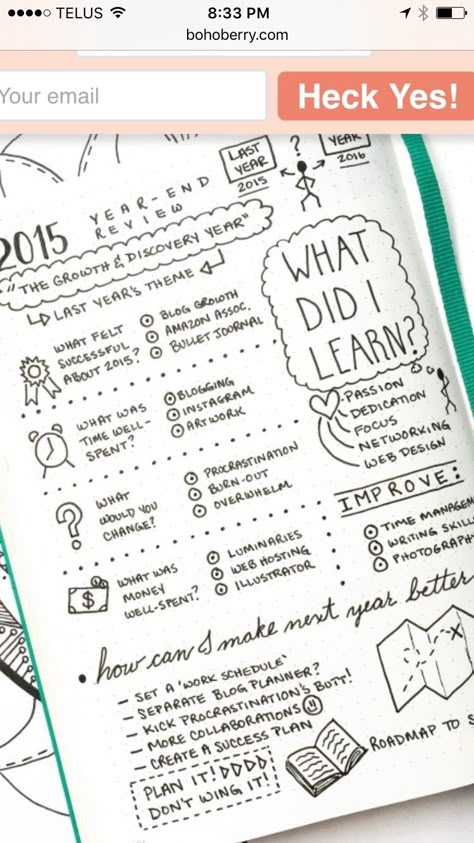 TELUS 8:33 PM
bohoberry.com
Your email
Heck Yes!
LAST YEAR 2015
?
YEAR 2016
2015 YEAR-END REVIEW
"THE GROWTH & DISCOVERY YEAR"
LAST YEAR'S THEME
WHAT FELT
SUCCESSFUL
ABOUT 2015?
BLOG GROWTH
AMAZON ASSOC.
BULLET JOURNAL
WHAT WAS
TIME WELL-
SPENT?
BLOGGING
INSTAGRAM
ARTWORK
?
WHAT
WOULD YOU
CHANGE?
PROCRASTINATION
BURN-OUT
OVERWHELM
$
WHAT WAS
MONEY
WELL-SPENT?
LUMINARIES
WEB HOSTING
ILLUSTRATOR
WHAT
DID I
LEARN?
PASSION
DEDICATION
FOCUS
NETWORKING
WEB DESIGN
IMPROVE:
TIME MANAGEM
WRITING SKILL
PHOTOGRAPH
• how can I make next year better
- SET A 'WORK SCHEDULE'
- SEPARATE BLOG PLANNER?
- KICK PROCRASTINATION'S BUTT!
- MORE COLLABORATIONS
- CREATE A SUCCESS PLAN
PLAN IT!
DON'T WING IT!
X
ROADMAP TO S